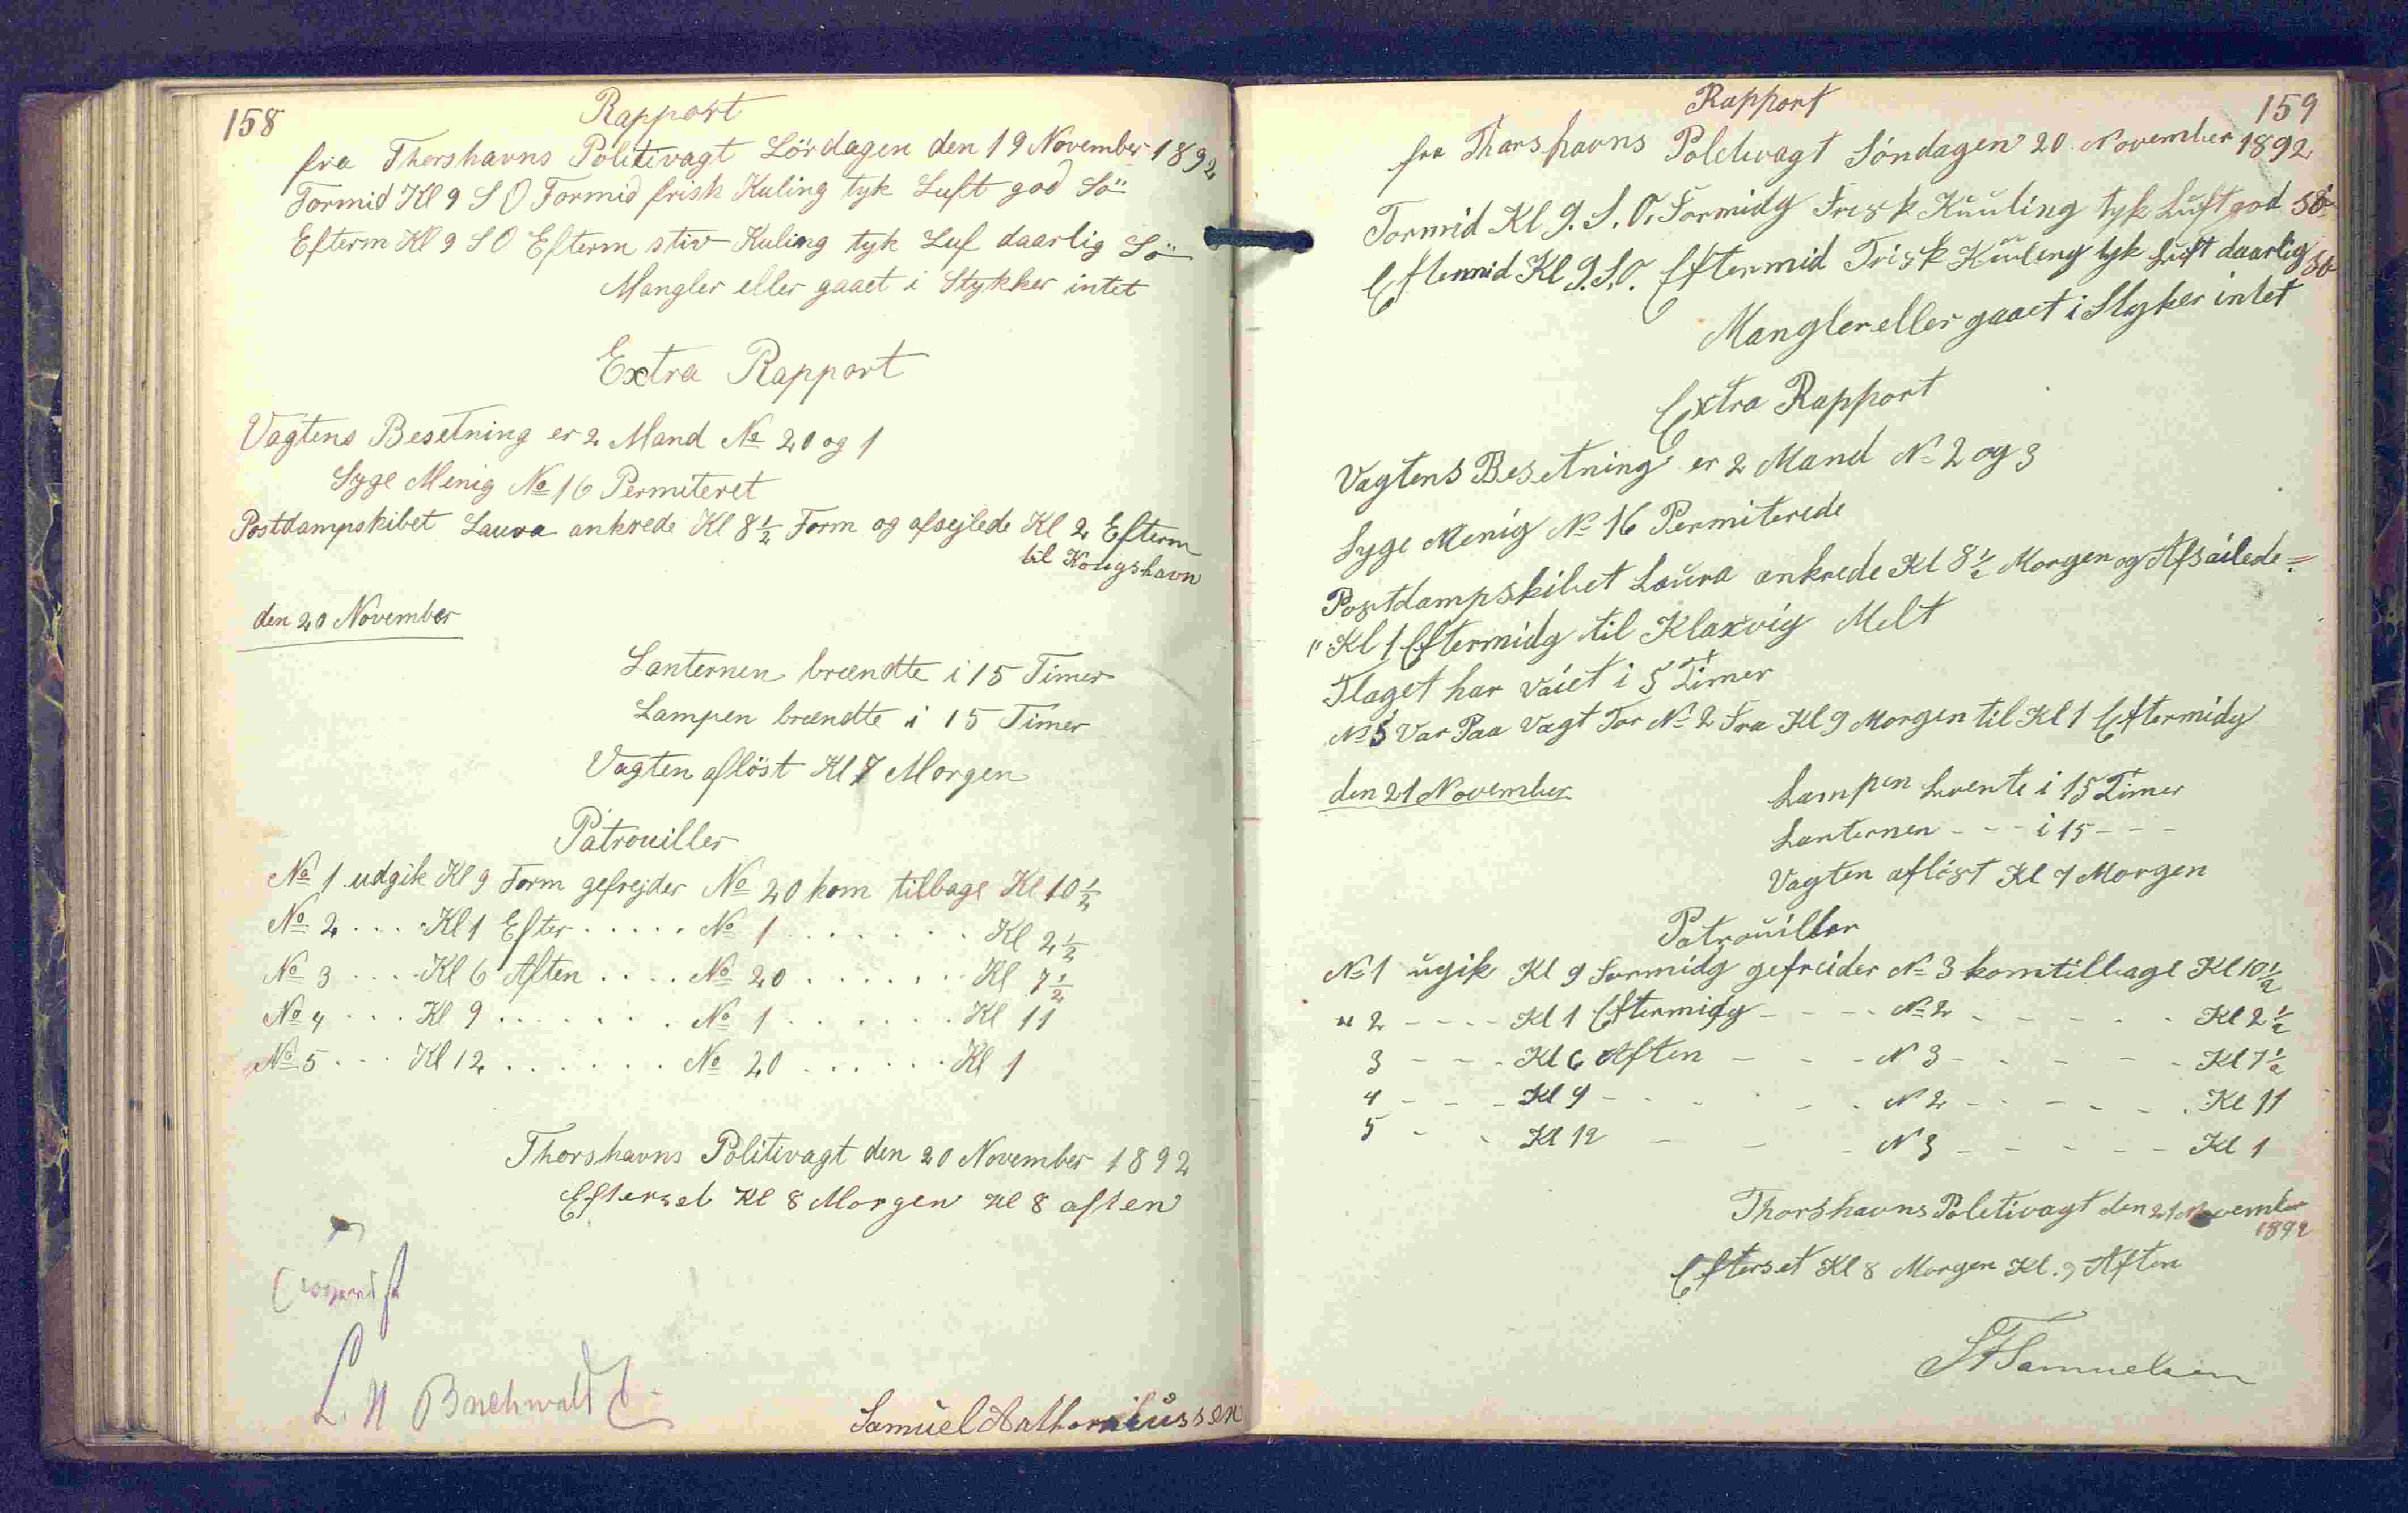 158
Rapport
fra Thorshavns Politivagt Lördagen den 19 November 1892
Formid Kl 9 S O Formid frisk Kuling tyk Luft god Sö
Efterm Kl 9 S O Efterm stiv Kuling tyk Luf daarlig Sö
Mangler eller gaaet i Stykker intet
Extra Rapport
Vagtens Besetning er 2 Mand No 20 og 1
Syge Menig No 16 Permiteret
Postdampskibet Laura ankrede Kl 8 1/2 Form og afsejlede Kl 2 Efterm
til Kongshavn
den 20 November
Lanternen brændte i 15 Timer
Lampen brændte i 15 Timer
Vagten aflöst Kl 7 Morgen
Patrouiller
No 1 udgik Kl 9 Form gefrejder No 20 kom tilbage Kl 10 1/2
No 2 . . . Kl 1 Efter . . . . . No 1 . . . . . . . Kl 2 1/2
No 3 . . . . Kl 6 Aften . . . . No 20 . . . . . . Kl 7 1/2
No 4 . . . Kl 9 . . . . . . . No 1 . . . . . . . Kl 11
No 5 . . . Kl 12 . . . . . . . No 20 . . . . . . Kl 1
Thorshavns Politivagt den 20 November 1892
Efterset Kl 8 Morgen Kl 8 aften
L. N Buchwald
Samuel
159
Rapport
fra Thorshavns Politivagt Söndagen 20 November 1892
Formid Kl 9. S. O. Formidg Frisk Kuuling tyk Luft god Sö
Eftermid Kl 9. S. O. Eftermid Frisk Kuuling tyk Luft daarlig Sö
Mangler eller gaaet i Styker intet
Extra Rapport
Vagtens Besetning er 2 Mand No 2 og 3
Syge Menig No 16 Permiterede
Postdampskibet Laura ankrede Kl 8 1/2 Morgen og Afsailede =
" Kl 1 Eftermidg til Klaxvig Melt
Flaget har vaiet i 5 Timer
No 5 Var Paa Vagt For No 2 Fra Kl 9 Morgen til Kl 1 Eftermidg
den 21 November
Lampen brente i 15 Timer
Lanternen - - - i 15 - - -
Vagten aflöst Kl 7 Morgen
Patrouiller
No 1 ugik Kl 9 Formidg gefreider No 3 kom tilbage Kl 10 1/2
" 2 - - - - Kl 1 Eftermidg - - - - No 2 - - - - - Kl 2 1/2
3 - - - Kl 6 Aften - - - N 3 - - - - - Kl 7 1/2
4 - - - Kl 9 - - - - - N 2 - - - - - Kl 11
5 - - Kl 12 - - - N 3 - - - - - Kl 1
Thorshavns Politivagt den 21 November
1892
Efterset Kl 8 Morgen Kl. 9 Aften
Samuelsen